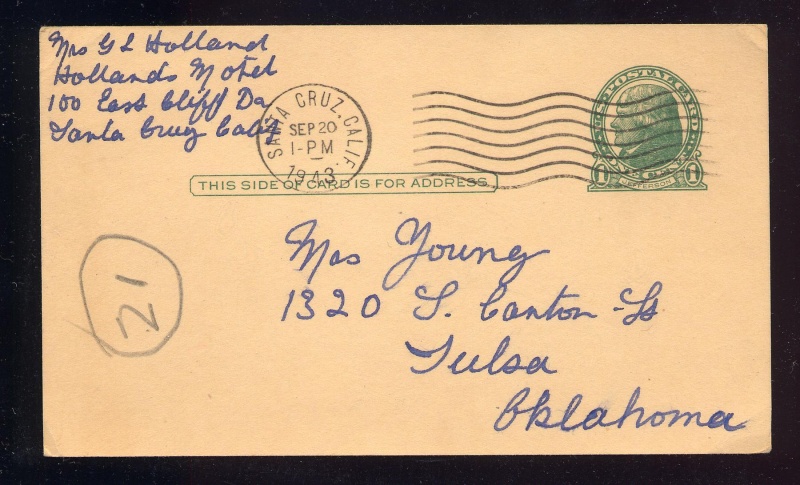 Mrs G L Holland
Hollands Motel
100 East Cliff Dr
Santa Cruz Calif
SANTA CRUZ, CALIF.
SEP 20
1-PM
1943
U.S. POSTAL CARD
1 JEFFERSON 1
THIS SIDE OF CARD IS FOR ADDRESS
21
Mrs Young
1320 S. Canton St
Tulsa
Oklahoma